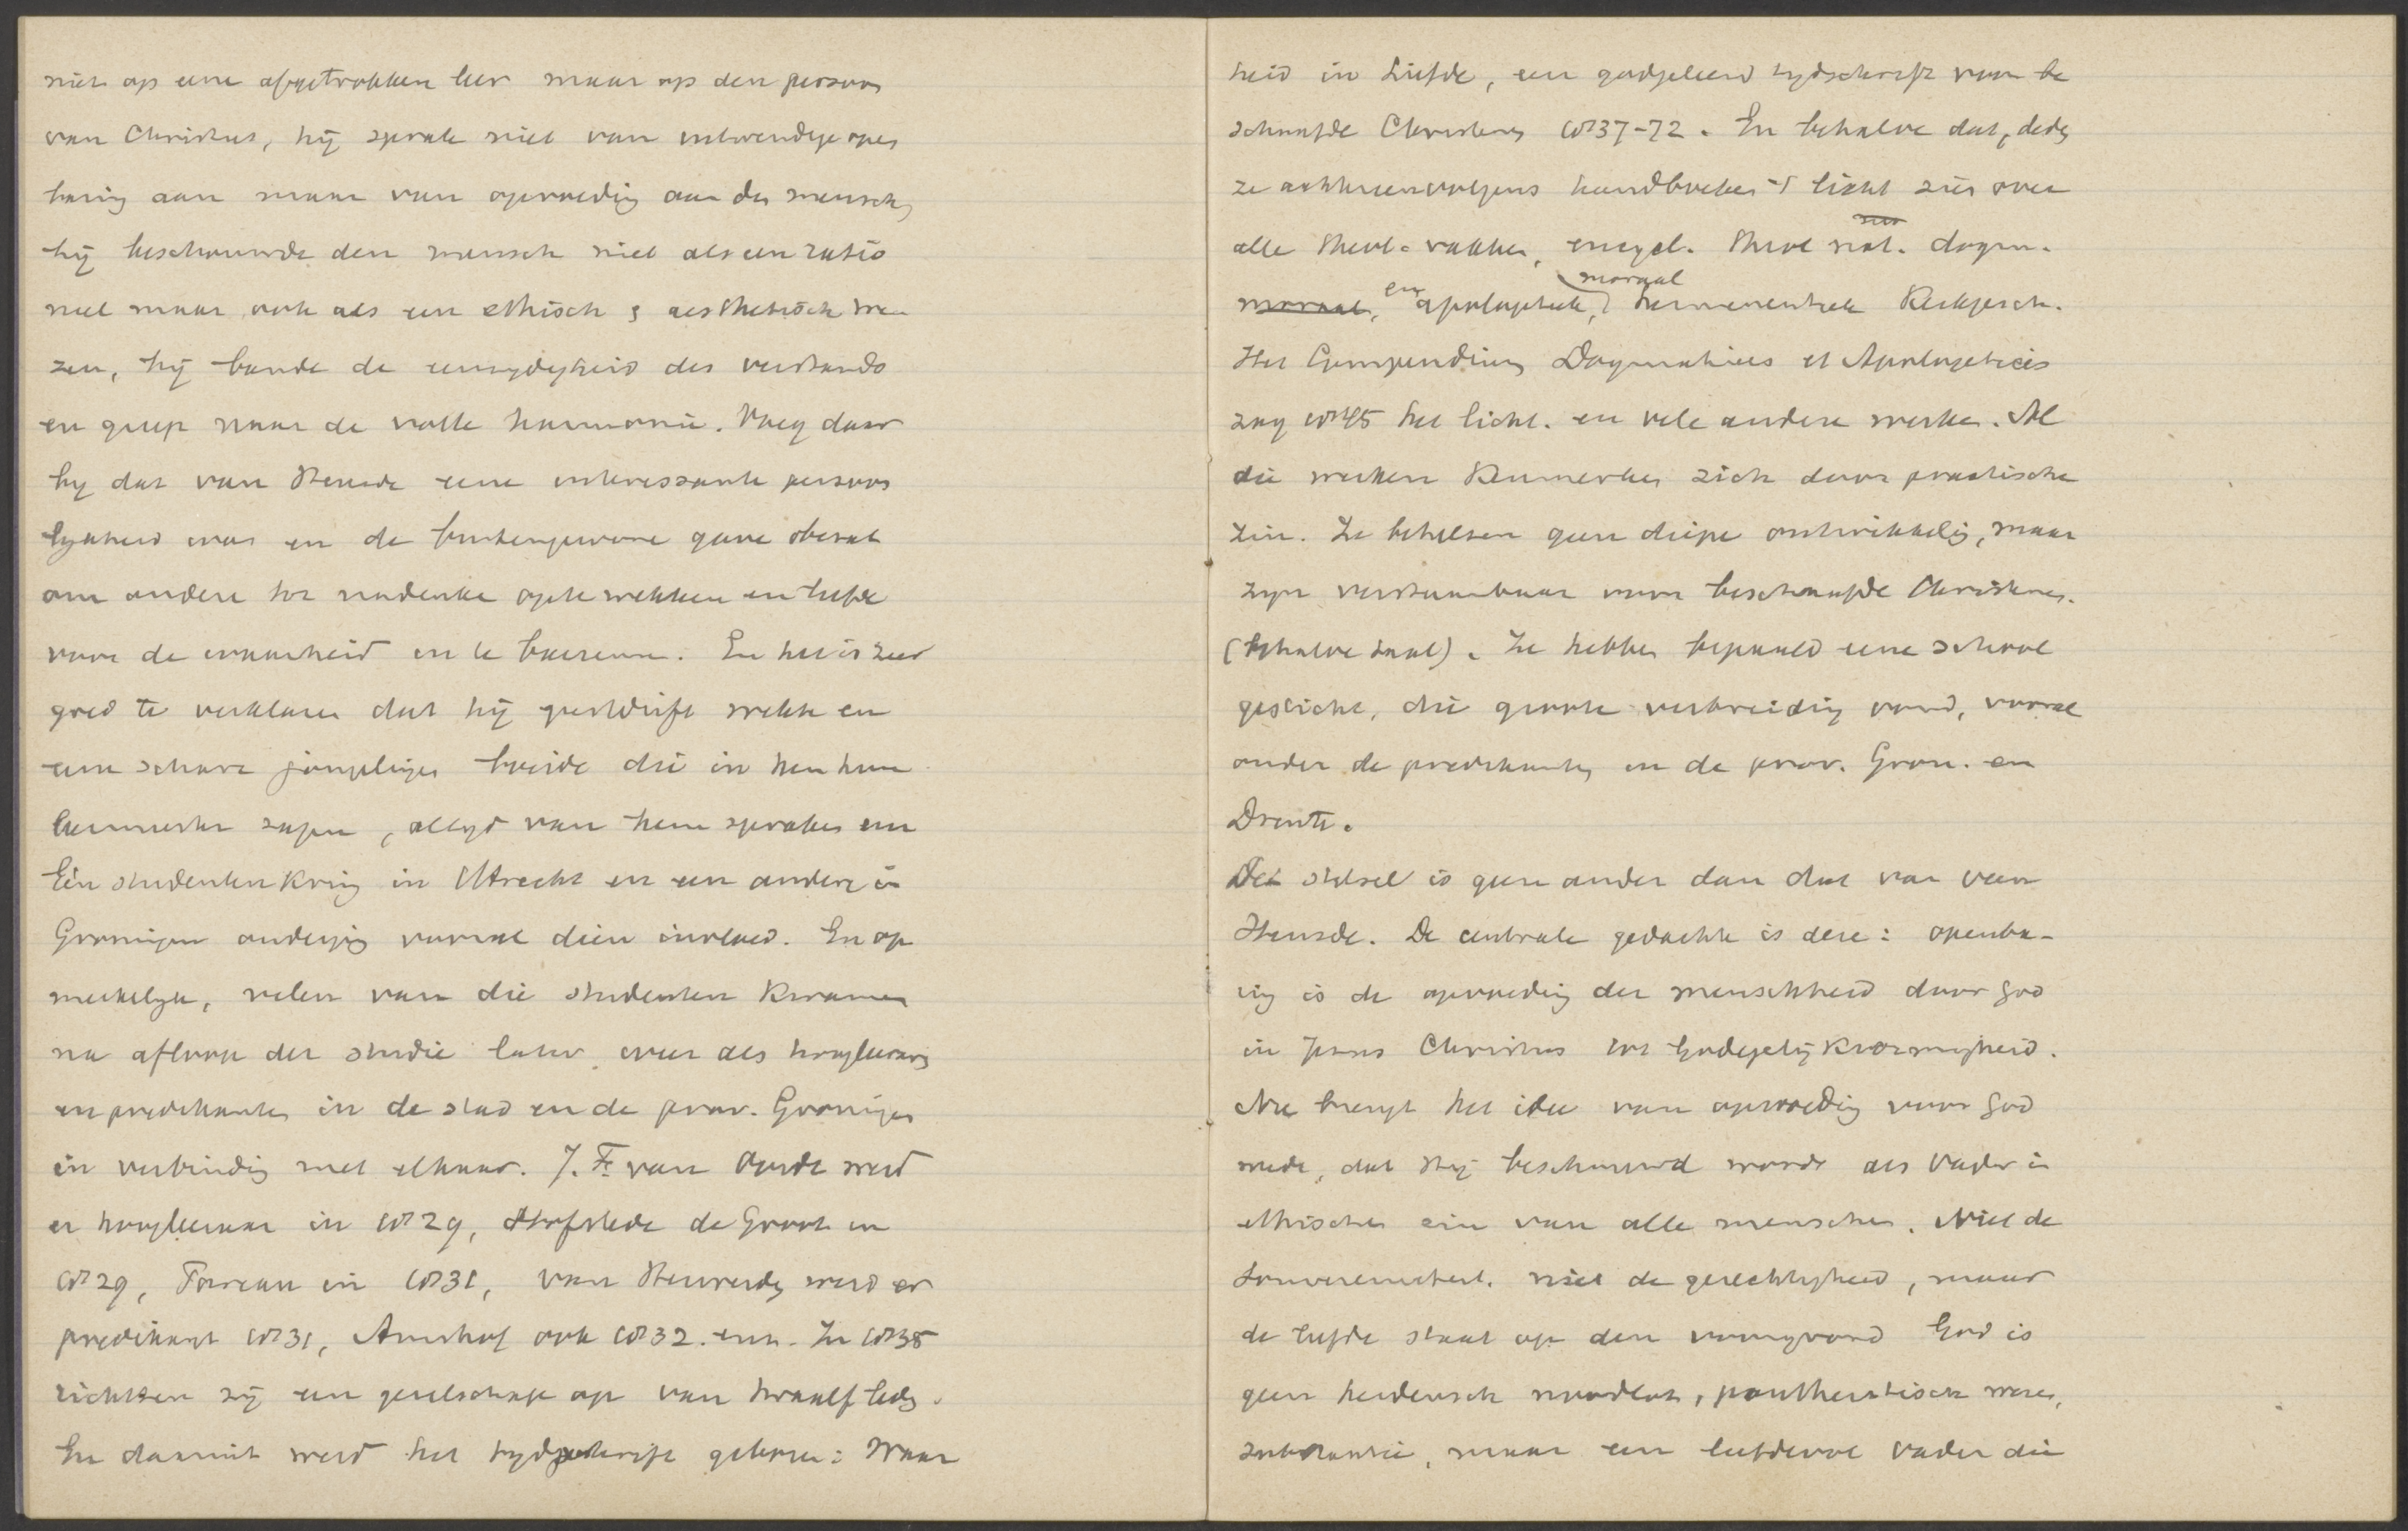 niet op eene afgetrokken leer maar op den persoon
van Christus, hij sprak niet van uitwendige open
baring aan maar van opvoeding aan den mensch,
hij beschouwde den mensch niet als een ratio
neel maar ook als een ethisch & aesthetisch we
zen, hij bande de eenzydigheid des verstands
en greep naar de volle harmonie. Voeg daar
by dat van Heusde eene interessante persoon
lykheid was en de buitengewone gave bezat
om andere tot nadenke opte wekken en liefde
voor de waarheid in te boezeme. En het is zeer
goed te verklaren dat hij geestdrift wekte en
eene schare jongelingen kweekte die in hem hun
leermeester zagen, altyd van hem spraken en
Eén studentenkring in Utrecht en een andere in
Groningen onderging vooral dien invloed. En op
merkelyk, velen van die studenten kwamen
na afloop der studie later weer als hoogleraars
en predikanten in de stad en de prov. Groningen
in verbinding met elkaar. J. F. van Oordt werd
er hoogleeraar in 1829, Hofstede de Groot in
1829, Pareau in 1831, van Herwerden werd er
predikant 1831, Amshof ook 1832. enz. In 1835
richtten zij een gezelschap op van twaalf leden.
En daaruit werd het tydschrift geboren: Waar
heid in Liefde, een godgeleerd tydschrift voor be
schaafde Christenen 1837-72. En behalve dat, deden
ze achtereenvolgens handboeken 't licht zien over
alle theol. vakken, encycl. theol nat. dogm.
moraal, en apologetiek, moraal hermeneutiek Kerkgesch.
Het Compendium Dogmatices et Apologetices
zag 1845 het licht. en vele andere werken. Al
die werken kenmerken zich door practische
zin. Ze behelsen geen diepe ontwikkeling, maar
zyn verstaanbaar voor beschaafde Christenen.
(behalve taal). Ze hebben bepaald eene school
gesticht, die groote verbreiding vond, vooral
onder de predikanten in de prov. Gron. en
Drente.
Het stelsel is geen ander dan dat van van
Heusde. De centrale gedachte is deze: openba-
ring is de opvoeding der menschheid door God
in Jezus Christus tot Godegelijkvormigheid.
Nu brengt het idee van opvoeding voor God
mede, dat Hij beschouwd worde als Vader in
ethischen zin van alle menschen. Niet de
Souvereiniteit. niet de gerechtigheid, maar
de liefde staat op den voorgrond God is
geen heidensch noodlot, pantheistisch wezen,
substantie, maar een liefdevol Vader die